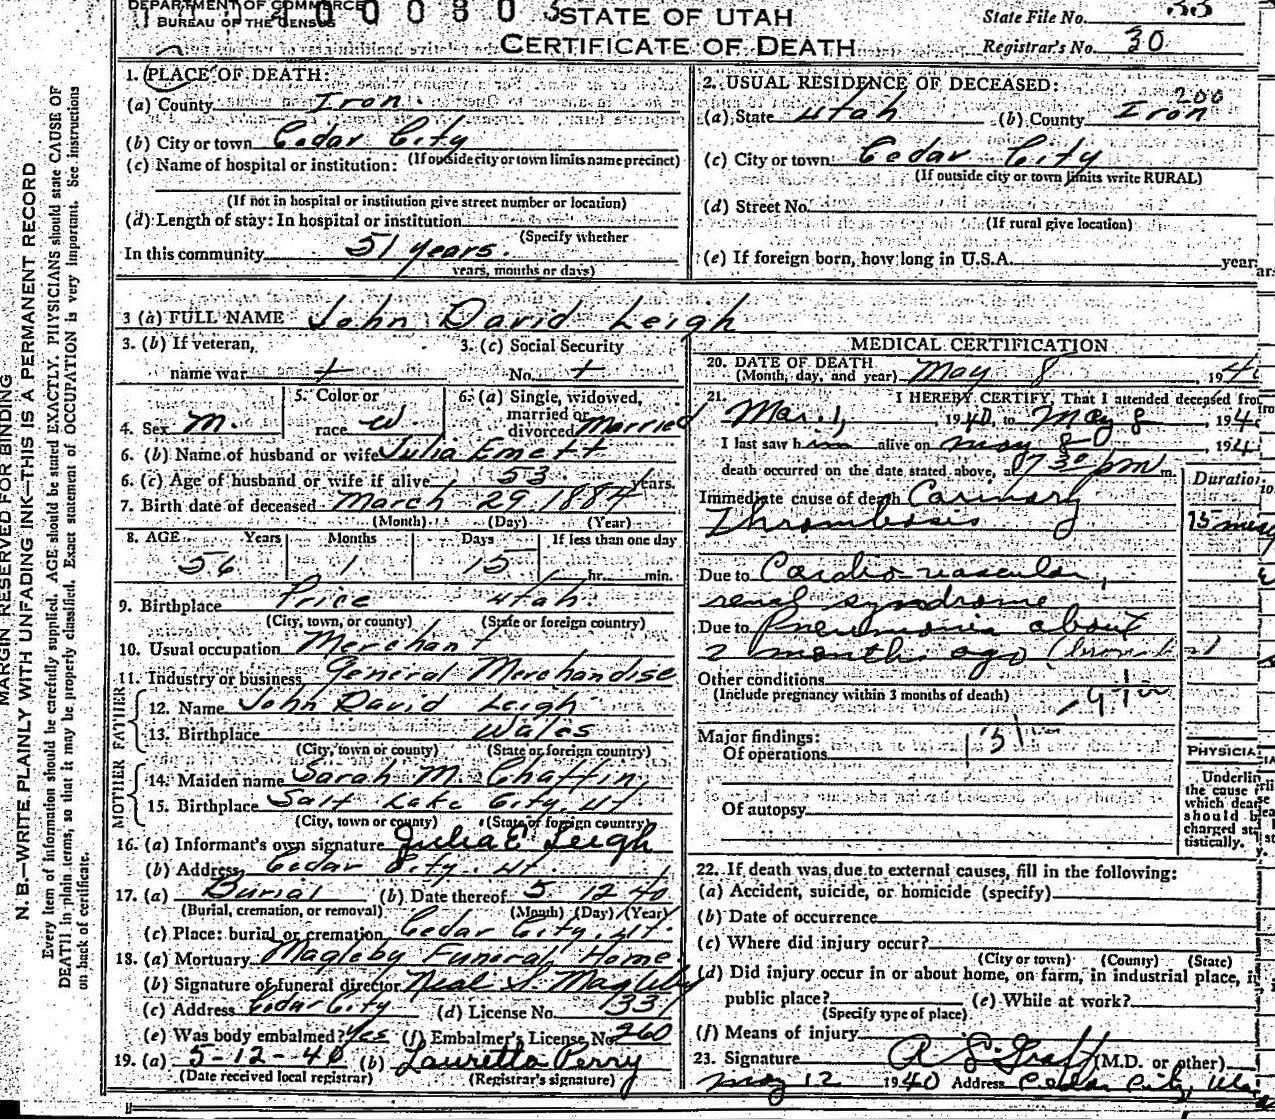 DEPARTMENT OF COMMERCE
BUREAU OF THE CENSUS
STATE OF UTAH
CERTIFICATE OF DEATH
State File No.
Registrar's No. 30
MARGIN RESERVED FOR BINDING
N. B.—WRITE PLAINLY WITH UNFADING INK—THIS IS A PERMANENT RECORD
Every item of information should be carefully supplied. AGE should be stated EXACTLY. PHYSICIANS should state CAUSE OF
DEATH in plain terms, so that it may be properly classified. Exact statement of OCCUPATION is very important. See instructions
on back of certificate.
1. PLACE OF DEATH:
(a) County Iron.
(b) City or town Cedar City
(If outside city or town limits name precinct)
(c) Name of hospital or institution:
(If not in hospital or institution give street number or location)
(d) Length of stay: In hospital or institution
(Specify whether
In this community 51 years.
years, months or days)
2. USUAL RESIDENCE OF DECEASED:
200
(a) State Utah (b) County Iron
(c) City or town Cedar City
(If outside city or town limits write RURAL)
(d) Street No.
(If rural give location)
(e) If foreign born, how long in U.S.A. year
3 (a) FULL NAME John David Leigh
3. (b) If veteran, name war +
3. (c) Social Security No. +
4. Sex M.
5. Color or race W.
6. (a) Single, widowed, married or divorced Married
6. (b) Name of husband or wife Julia Emett
6. (c) Age of husband or wife if alive 53 years.
7. Birth date of deceased March 29 1884
(Month) (Day) (Year)
8. AGE Years Months Days If less than one day
56 1 15 hr. min.
9. Birthplace Price Utah.
(City, town, or county) (State or foreign country)
10. Usual occupation Merchant
11. Industry or business General Merchandise
FATHER
12. Name John David Leigh
13. Birthplace Wales
(City, town or county) (State or foreign country)
MOTHER
14. Maiden name Sarah M. Chaffin
15. Birthplace Salt Lake City, Ut
(City, town or county) (State or foreign country)
16. (a) Informant's own signature Julia E Leigh
(b) Address Cedar City. Ut.
17. (a) Burial (b) Date thereof 5 12 40
(Burial, cremation, or removal) (Month) (Day) (Year)
(c) Place: burial or cremation Cedar City, Ut.
18. (a) Mortuary Magleby Funeral Home
(b) Signature of funeral director Neal S. Magleby
(c) Address Cedar City (d) License No. 331
(e) Was body embalmed? Yes (f) Embalmer's License No. 260
19. (a) 5-12-40 (b) Lauretta Perry
(Date received local registrar) (Registrar's signature)
MEDICAL CERTIFICATION
20. DATE OF DEATH
(Month, day, and year) May 8, 194
21. I HEREBY CERTIFY, That I attended deceased fro
Mar. 1, 1940, to May 8, 194
I last saw him alive on May 8, 194
death occurred on the date stated above, a 7 30 pm m.
Duration
Immediate cause of death Coronary
Thrombosis 15
Due to Cardio-vascular,
renal syndrome
Due to Pneumonia about
2 months ago
Other conditions
(Include pregnancy within 3 months of death)
Major findings:
Of operations
Of autopsy
PHYSICIA
Underlin
the cause
which deat
should b
charged st
tistically.
22. If death was due to external causes, fill in the following:
(a) Accident, suicide, or homicide (specify)
(b) Date of occurrence
(c) Where did injury occur?
(City or town) (County) (State)
(d) Did injury occur in or about home, on farm, in industrial place, i
public place? (e) While at work?
(Specify type of place)
(f) Means of injury
23. Signature A. L. Graff (M.D. or other)
May 12 1940 Address Cedar City, Uta